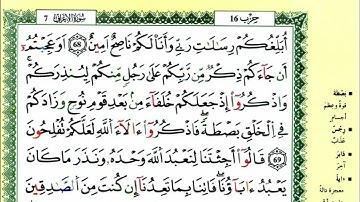 سورة الأعراف 7
حزب 16
أُبَلِّغُكُمْ رِسَالَاتِ رَبِّي وَأَنَا لَكُمْ نَاصِحٌ أَمِينٌ 68 أَوَعَجِبْتُمْ
أَن جَاءَكُمْ ذِكْرٌ مِّن رَّبِّكُمْ عَلَى رَجُلٍ مِّنكُمْ لِيُنذِرَكُمْ
وَاذْكُرُوا إِذْ جَعَلَكُمْ خُلَفَاءَ مِن بَعْدِ قَوْمِ نُوحٍ وَزَادَكُمْ
فِي الْخَلْقِ بَصْطَةً فَاذْكُرُوا ءَالَاءَ اللَّهِ لَعَلَّكُمْ تُفْلِحُونَ
69 قَالُوا أَجِئْتَنَا لِنَعْبُدَ اللَّهَ وَحْدَهُ وَنَذَرَ مَا كَانَ
يَعْبُدُ ءَابَاؤُنَا فَأْتِنَا بِمَا تَعِدُنَا إِن كُنتَ مِنَ الصَّادِقِينَ
بصطة
قوة وعظم
رجس
عذاب
دابر
آية
معجزة دالة